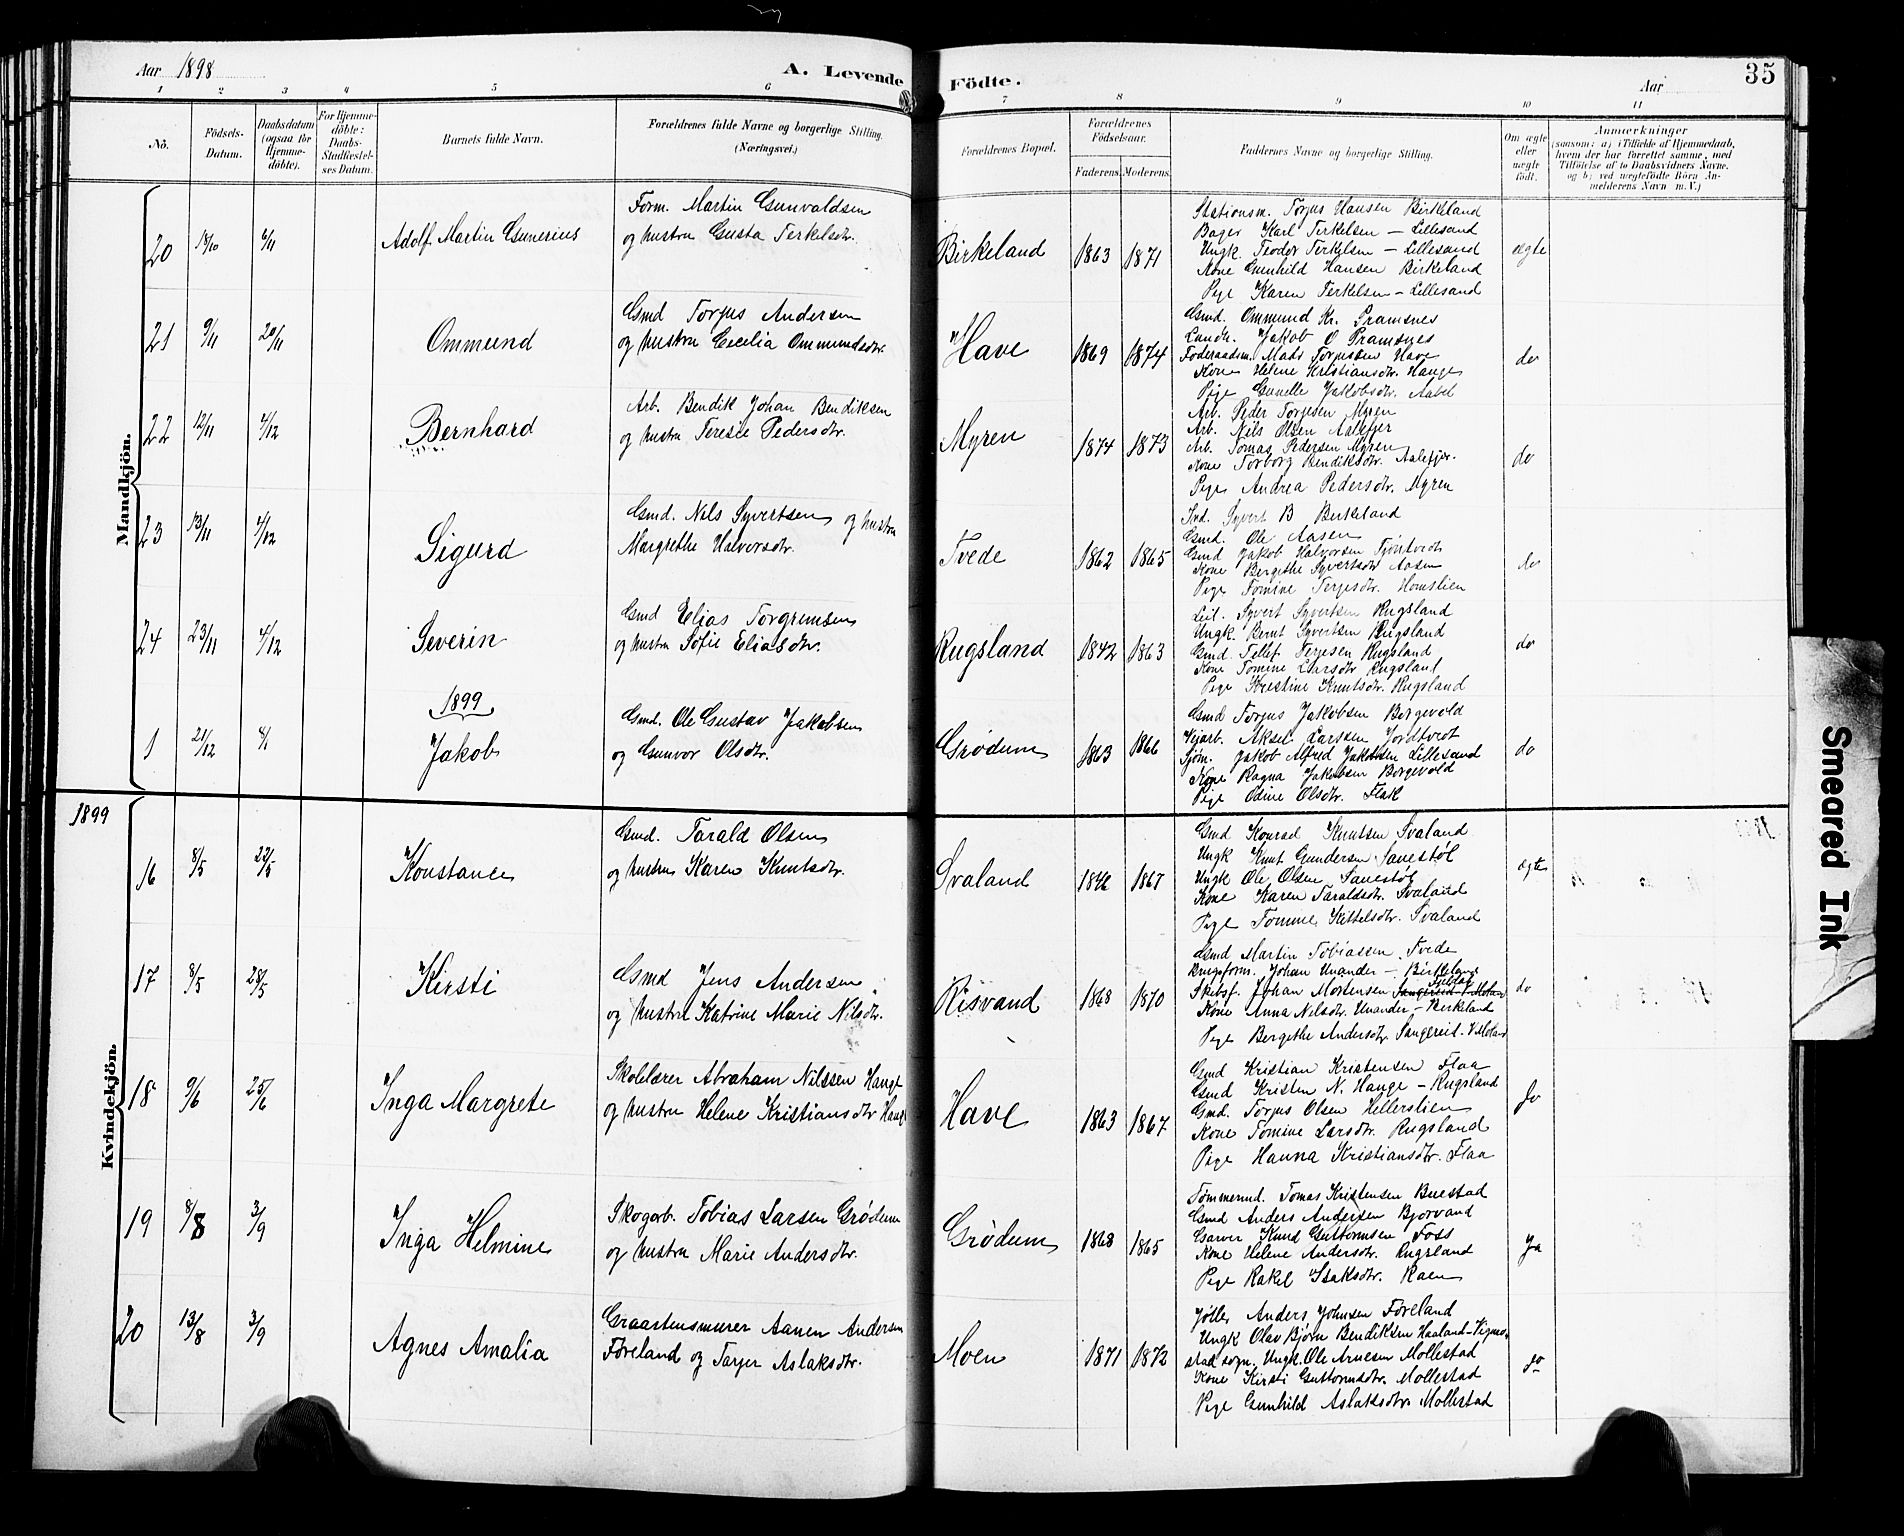 Aar 1898
A. Levende Födte.
Aar
35
1 2 3 4 5 6 7 8 9 10 11
No.
Födsels-Datum.
Daabsdatum (ogsaa for Hjemme-döbte).
For Hjemme-döbte: Daabs-Stadfæstel-ses Datum.
Barnets fulde Navn.
Forældrenes fulde Navne og borgerlige Stilling. (Næringsvei.)
Forældrenes Bopæl.
Forældrenes Födselsaar.
Faderens. Moderens.
Faddernes Navne og borgerlige Stilling.
Om ægte eller uægte födt.
Anmærkninger
(saasom: a) i Tilfælde af Hjemmedaab,
hvem der har forrettet samme, med
Tilföielse af to Daabsvidners Navne.
og b) ved uægtefödte Börn An-
melderens Navn m. V.)
Mandkjön.
20 15/10 6/11 Adolf Martin Gunerius
Form. Martin Gunvaldsen
og hustru Gusta Terkelsdtr.
Birkeland 1863 1871
Stationsm. Torjus Hansen Birkeland
Bager Karl Terkelsen – Lillesand
Ungk. Teodor Terkelsen – Lillesand
Kone Gunhild Hansen Birkeland
Pige Karen Terkelsen – Lillesand
ægte
21 9/11 20/11 Ommund
Gmd Torjus Andersen
og hustru Cecilia Ommundsdtr.
Have 1869 1874
Gmd. Ommund Kr. Pramsnes
Landh. Jakob O Pramsnes
Føderaadsm. Mads Torjussen Have
Kone Helene Kristiansdtr. Hauge
Pige Gunelle Jakobsdtr. Aabel
do
22 12/11 4/12 Bernhard
Arb. Bendik Johan Bendiksen
og hustru Teresie Pedersdtr.
Myren 1874 1873
Arb. Peder Torjesen Myren
Arb. Nils Olsen Aalefjer
Arb. Tomas Pedersen Myren
Kone Torborg Bendiksdtr. Aalefjer.
Pige Andrea Pedersdtr. Myren
do
23 13/11 4/12 Sigurd
Gmd. Nils Syvertsen og hustru
Margrethe Halvorsdtr.
Tvede 1862 1865
Ind. Syvert B Birkeland
Gmd. Ole Aasen
Gmd Jakob Halvorsen Tjöntvedt
Kone Bergethe Syvertsdtr Aasen
Pige Tomine Terjesdtr. Homslien
do
24 23/11 4/12 Severin
Gmd Elias Torgrimsen
og hustru Sofie Eliasdtr.
Rugsland 1842 1863
Leil. Syvert Syvertsen Rugsland
Ungk. Bernt Syvertsen Rugsland
Gmd. Tellef Terjesen Rugsland
Kone Tomine Larsdtr Rugsland
Pige Kristine Knutsdtr. Rugsland
do
1899
1 21/12 8/1 Jakob
Gmd. Ole Gustav Jakobsen
og Gunvor Olsdtr.
Grødum 1863 1866
Gmd Torjus Jakobsen Borgevold
Vejarb. Aksel Larssen Jordtveit
Sjöm. Jakob Alfred Jakobsen Lillesand
Kone Ragna Jakobsen Borgevold
Pige Odine Olsdtr. Flak
do
1899
Kvindekjön.
16 8/5 22/5 Konstance
Gmd. Tarald Olsen
og hustru Karen Knutsdtr.
Svaland 1842 1867
Gmd Konrad Knutsen Svaland
Ungk Knut Gundersen Sanestöl
Ungk Ole Olsen Sanestöl
Kone Karen Taraldsdtr. Svaland
Pige Tomine Kittelsdtr. Svaland
ægte
17 8/5 28/5 Kirsti
Gmd Jens Andersen
og hustru Katrine Marie Nilsdtr.
Risvand 1868 1870
Gmd Martin Tobiassen Tvede
Brugsform. Johan Unander – Birkeland
Skibsf. Johan Mortensen
Kone Anna Nilsdtr. Unander – Birkeland
Pige Bergethe Andersdtr. Sangereid. V.Moland
do
18 9/6 25/6 Inga Margrete
Skolelærer Abraham Nilssen Hauge
og hustru Helene Kristiansdtr Hauge
Have 1863 1867
Gmd Kristian Kristensen Flaa
Gmd Kristen N. Hauge – Rugsland
Gmd. Torjus Olsen Hellerslien
Kone Tomine Larsdtr. Rugsland
Pige Hanna Kristiansdtr. Flaa
do
19 8/8 3/9 Inga Helmine
Skogarb. Tobias Larsen Grødum
og hustru Marie Andersdtr.
Grødum 1868 1865
Tömmermd. Tomas Kristensen Buestad
Gmd Anders Andersen Bjorvand
Garver Knud Guttormsen Foss
Kone Helene Andersdtr. Rugsland
Pige Rakel Isaksdtr. Raen
Ja
20 13/8 3/9 Agnes Amalia
Graastensmurer Aanen Andersen
Føreland og Tarjer Aslaksdtr.
Moen 1871 1872
Anders Johnsen Føreland
Ungk Olav Bjorn Bendiksen Haaland–Vigmo-
stad sogn. Ungk. Ole Arnesen Mollestad
Kone Kirsti Guttormsdtr. Mollestad
Pige Gunhild Aslaksdtr. Mollestad
do
Smeared Ink